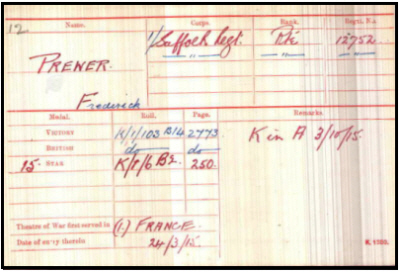 12 Name. Corps. Rank. Regtl. No.
1/Suffolk Regt. Pte 12752
PREWER.
Frederick
Medal. Roll. Page. Remarks.
VICTORY K/1/103 B14 2773. K in A 3/10/15.
BRITISH do do
15 STAR K/1/6 B2. 250.
Theatre of War first served in (1.) FRANCE.
Date of entry therein 24/3/15.
K. 1380.